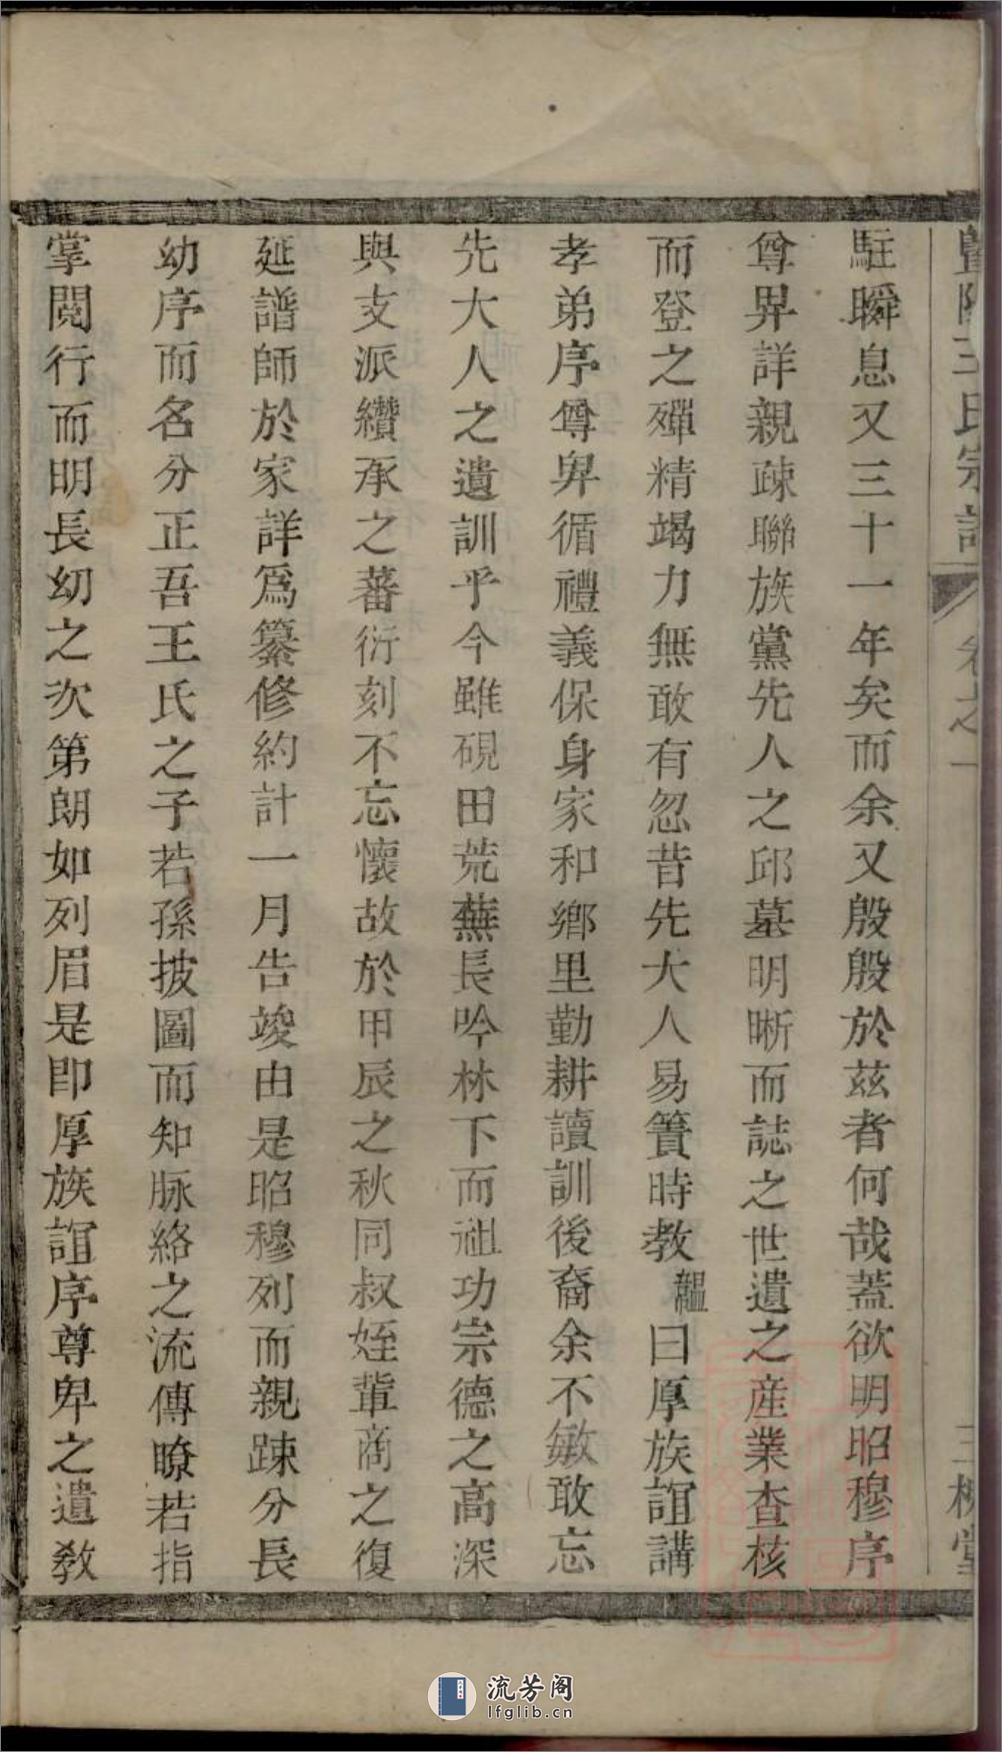 暨陽王氏宗譜 卷之一 三槐堂
駐瞬息又三十一年矣而余又殷殷於茲者何哉蓋欲明昭穆序
尊畀詳親疎聯族黨先人之邱墓明晰而誌之世遺之産業查核
而登之殫精竭力無敢有忽昔先大人易簀時教韞曰厚族誼講
孝弟序尊卑循禮義保身家和鄉里勤耕讀訓後裔余不敏敢忘
先大人之遺訓乎今雖硯田荒蕪長吟林下而祖功宗德之高深
與支派纘承之蕃衍刻不忘懷故於甲辰之秋同叔姪輩商之復
延譜師於家詳爲纂修約計一月告竣由是昭穆列而親踈分長
幼序而名分正吾王氏之子若孫披圖而知脉絡之流傳瞭若指
掌閱行而明長幼之次第朗如列眉是卽厚族誼序尊卑之遺教
流芳阁
lfglib.cn